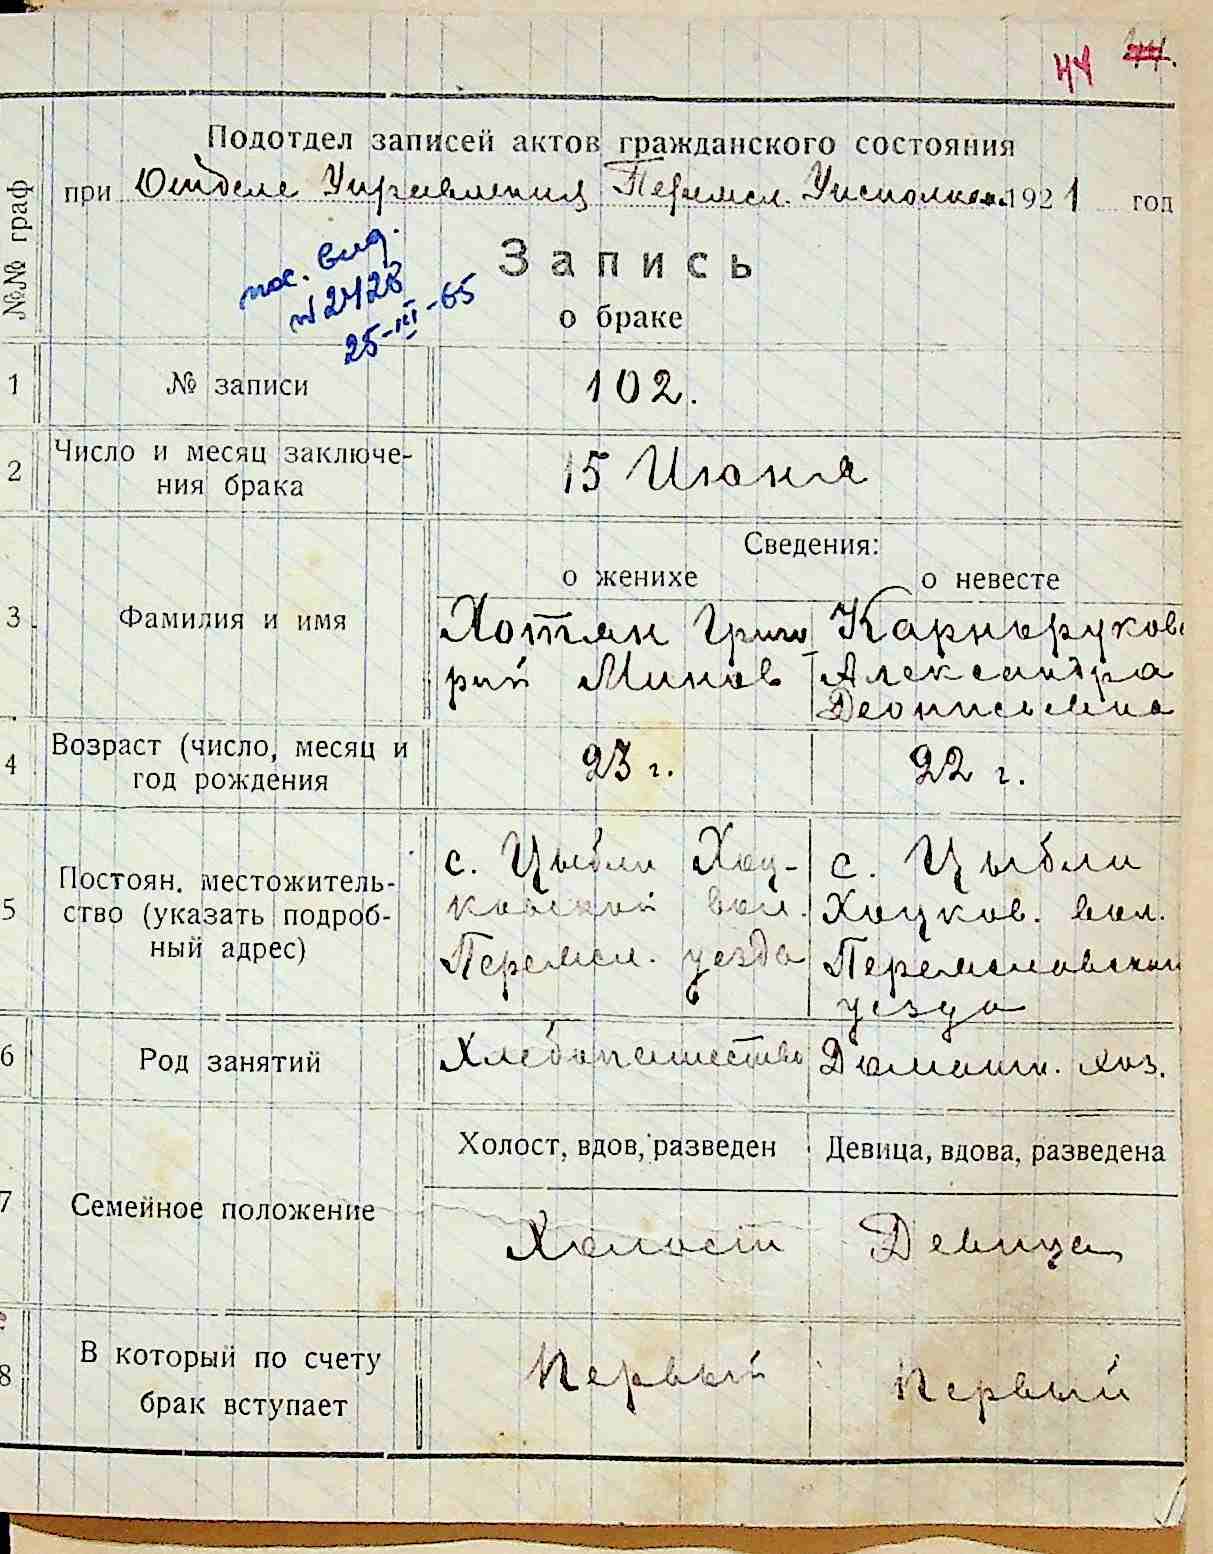 44 44.
Подотдел записей актов гражданского состояния
при Отделе Управления Переясл. Уисполком. 1921 год
№№ граф
Запись
о браке
пос. выд.
№ 2428
25-III-65
1 № записи 102.
2 Число и месяц заключе-
ния брака 15 Июня
Сведения:
о женихе о невесте
3 Фамилия и имя
Хотян Григо
рий Минов
Карнаруков
Александра
Деонисьевна
4 Возраст (число, месяц и
год рождения 23 г. 22 г.
5 Постоян. местожитель-
ство (указать подроб-
ный адрес)
с. Цыбли Хоц-
ковской вол.
Переясл. уезда
с. Цыбли
Хоцков. вол.
Переясловский
уезда
6 Род занятий Хлебопашество Домашн. хоз.
Холост, вдов, разведен Девица, вдова, разведена
7 Семейное положение Холост Девица
8 В который по счету
брак вступает Первый Первый